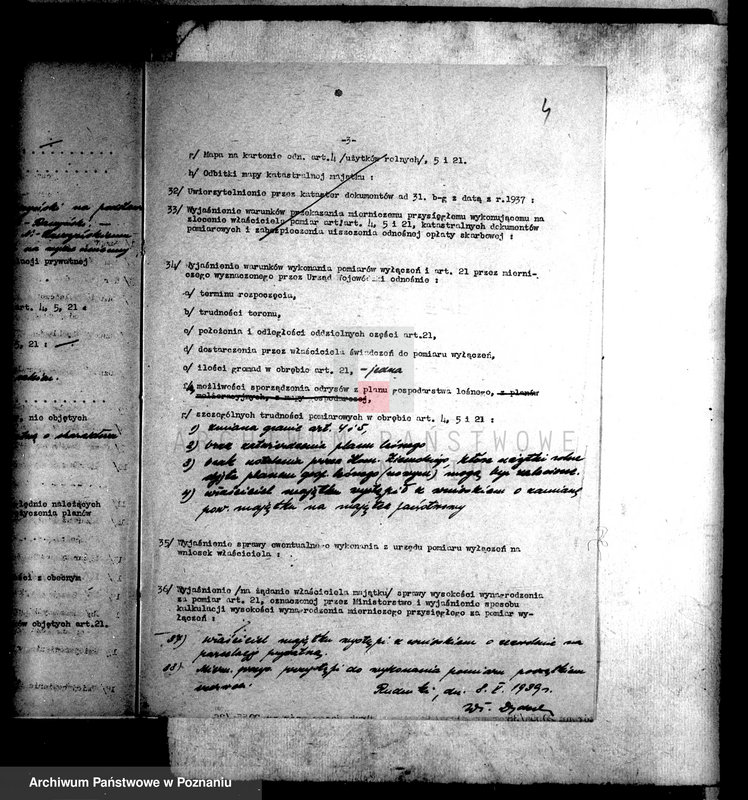 4
-3-
g/ Mapa na kartonie odn. art.4 /użytków rolnych/, 5 i 21.
h/ Odbitki mapy katastralnej majątku :
32/ Uwierzytelnienie przez kataster dokumentów ad 31. b-g z datą z r.1937 :
33/ Wyjaśnienie warunków przekazania mierniczemu przysięgłemu wykonującemu na
zlecenie właściciela pomiar art/art. 4, 5 i 21, katastralnych dokumentów
pomiarowych i zabezpieczenia uiszczenia odnośnej opłaty skarbowej :
34/ Wyjaśnienie warunków wykonania pomiarów wyłączeń i art. 21 przez mierni-
czego wyznaczonego przez Urząd Wojewódzki odnośnie :
a/ terminu rozpoczęcia,
b/ trudności terenu,
c/ położenia i odległości oddzielnych części art.21,
d/ dostarczenia przez właściciela świadczeń do pomiaru wyłączeń,
e/ ilości gromad w obrębie art. 21, - jedna
f/ możliwości sporządzenia odrysów z planu gospodarstwa leśnego, z planów
melioracyjnych, z mapy gospodarczej,
g/ szczególnych trudności pomiarowych w obrębie art. 4, 5 i 21 :
1) zmiana granic art. 4 i 5,
2) brak zatwierdzenia planu leśnego
3) brak przez które użytki rolne
planem gosp. leśnego (nowych) mogą być zaliczone.
4) właściciel majątku wystąpił z wnioskiem o zamianę
pow. majątku na majątek państwowy
ARCHIWUM PAŃSTWOWE
35/ Wyjaśnienie sprawy ewentualnego wykonania z urzędu pomiaru wyłączeń na
wniosek właściciela :
36/ Wyjaśnienie /na żądanie właściciela majątku/ sprawy wysokości wynagrodzenia
za pomiar art. 21, oznaczonej przez Ministerstwo i wyjaśnienie sposobu
kalkulacji wysokości wynagrodzenia mierniczego przysięgłego za pomiar wy-
łączeń :
37) właściciel majątku wystąpi z wnioskiem o zezwolenie na
parcelację prywatną.
38) Miern. przys. przystąpi do wykonania pomiaru początkiem
dn. 8. V. 1939 r.
na podstaw
acji prywatnej
art. 4, 5, 21 :
5, 21 :
, nie objętych
o charakterze
ględnie należących
ożyczenia planów
ści z obecnym
ów objętych art.21.
Archiwum Państwowe w Poznaniu